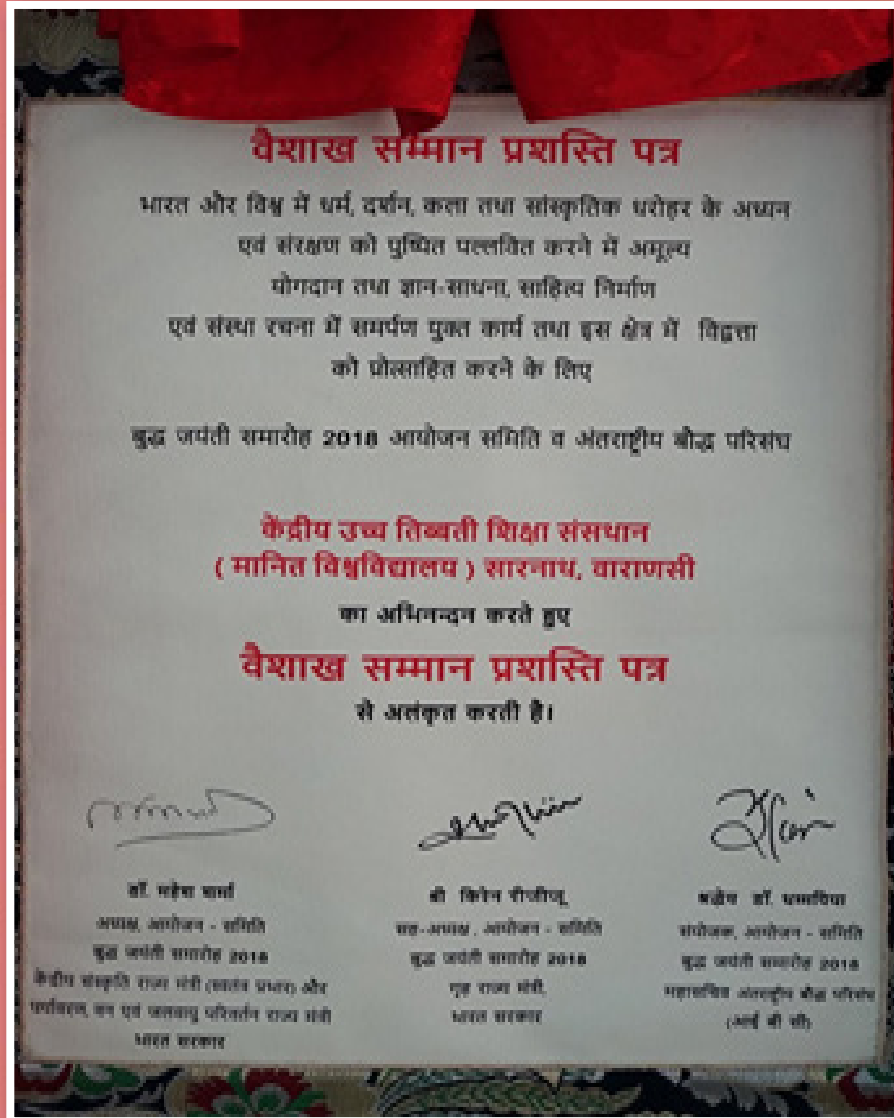 वैशाख सम्मान प्रशस्ति पत्र
भारत और विश्व में धर्म, दर्शन, कला तथा सांस्कृतिक धरोहर के अध्यन
एवं संरक्षण को पुष्पित पल्लवित करने में अमूल्य
योगदान तथा ज्ञान-साधना, साहित्य निर्माण
एवं संस्था रचना में समर्पण युक्त कार्य तथा इस क्षेत्र में विद्वत्ता
को प्रोत्साहित करने के लिए
बुद्ध जयंती समारोह 2018 आयोजन समिति व अंतराष्ट्रीय बौद्ध परिसंघ
केंद्रीय उच्च तिब्बती शिक्षा संसथान
( मानित विश्वविद्यालय ) सारनाथ, वाराणसी
का अभिनन्दन करते हुए
वैशाख सम्मान प्रशस्ति पत्र
से अलंकृत करती है।
डॉ. महेश शर्मा
अध्यक्ष, आयोजन - समिति
बुद्ध जयंती समारोह 2018
केंद्रीय संस्कृति राज्य मंत्री (स्वतंत्र प्रभार) और
पर्यावरण, वन एवं जलवायु परिवर्तन राज्य मंत्री
भारत सरकार
श्री किरेन रीजीजू
सह-अध्यक्ष, आयोजन - समिति
बुद्ध जयंती समारोह 2018
गृह राज्य मंत्री,
भारत सरकार
श्रद्धेय डॉ. धम्मपिया
संयोजक, आयोजन - समिति
बुद्ध जयंती समारोह 2018
महासचिव अंतराष्ट्रीय बौद्ध परिसंघ
(आई बी सी)